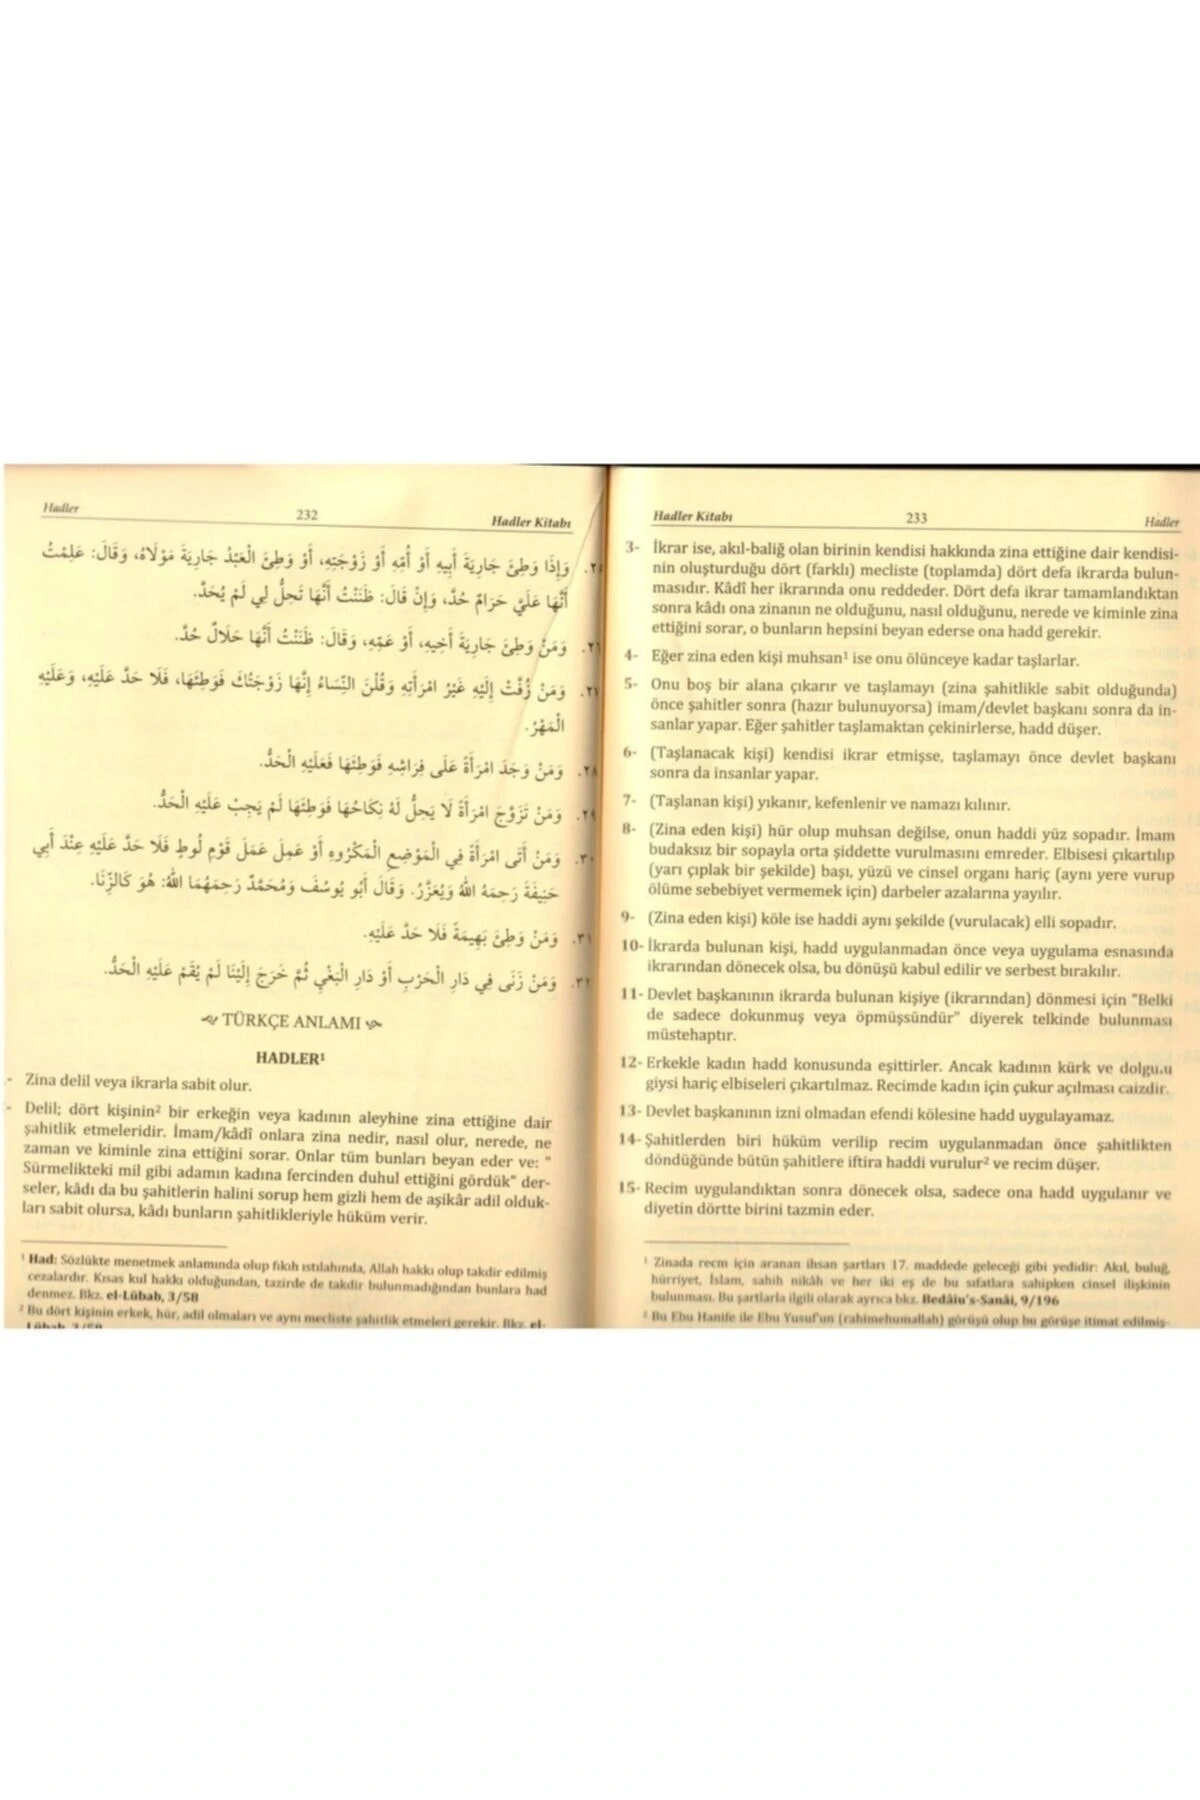 Hadler
232
Hadler Kitabı
٢٥. وَإِذَا وَطِئَ جَارِيَةَ أَبِيهِ أَوْ أُمِّهِ أَوْ زَوْجَتِهِ، أَوْ وَطِئَ الْعَبْدُ جَارِيَةَ مَوْلَاهُ، وَقَالَ: عَلِمْتُ
أَنَّهَا عَلَيَّ حَرَامٌ حُدَّ، وَإِنْ قَالَ: ظَنَنْتُ أَنَّهَا تَحِلُّ لِي لَمْ يُحَدَّ.
٢٦. وَمَنْ وَطِئَ جَارِيَةَ أَخِيهِ، أَوْ عَمِّهِ، وَقَالَ: ظَنَنْتُ أَنَّهَا حَلَالٌ حُدَّ.
٢٧. وَمَنْ زُفَّتْ إِلَيْهِ غَيْرُ امْرَأَتِهِ وَقُلْنَ النِّسَاءُ إِنَّهَا زَوْجَتُكَ فَوَطِئَهَا، فَلَا حَدَّ عَلَيْهِ، وَعَلَيْهِ
الْمَهْرُ.
٢٨. وَمَنْ وَجَدَ امْرَأَةً عَلَى فِرَاشِهِ فَوَطِئَهَا فَعَلَيْهِ الْحَدُّ.
٢٩. وَمَنْ تَزَوَّجَ امْرَأَةً لَا يَحِلُّ لَهُ نِكَاحُهَا فَوَطِئَهَا لَمْ يَجِبْ عَلَيْهِ الْحَدُّ.
٣٠. وَمَنْ أَتَى امْرَأَةً فِي الْمَوْضِعِ الْمَكْرُوهِ أَوْ عَمِلَ عَمَلَ قَوْمِ لُوطٍ فَلَا حَدَّ عَلَيْهِ عِنْدَ أَبِي
حَنِيفَةَ رَحِمَهُ اللهُ وَيُعَزَّرُ. وَقَالَ أَبُو يُوسُفَ وَمُحَمَّدٌ رَحِمَهُمَا اللهُ: هُوَ كَالزِّنَا.
٣١. وَمَنْ وَطِئَ بَهِيمَةً فَلَا حَدَّ عَلَيْهِ.
٣٢. وَمَنْ زَنَى فِي دَارِ الْحَرْبِ أَوْ دَارِ الْبَغْيِ ثُمَّ خَرَجَ إِلَيْنَا لَمْ يُقَمْ عَلَيْهِ الْحَدُّ.
TÜRKÇE ANLAMI
HADLER¹
- Zina delil veya ikrarla sabit olur.
- Delil; dört kişinin² bir erkeğin veya kadının aleyhine zina ettiğine dair
şahitlik etmeleridir. İmam/kâdî onlara zina nedir, nasıl olur, nerede, ne
zaman ve kiminle zina ettiğini sorar. Onlar tüm bunları beyan eder ve: "
Sürmelikteki mil gibi adamın kadına fercinden duhul ettiğini gördük" der-
seler, kâdı da bu şahitlerin halini sorup hem gizli hem de aşikâr adil olduk-
ları sabit olursa, kâdı bunların şahitlikleriyle hüküm verir.
¹ Had: Sözlükte menetmek anlamında olup fıkıh ıstılahında, Allah hakkı olup takdir edilmiş
cezalardır. Kısas kul hakkı olduğundan, tazirde de takdir bulunmadığından bunlara had
denmez. Bkz. el-Lübab, 3/58
² Bu dört kişinin erkek, hür, adil olmaları ve aynı mecliste şahitlik etmeleri gerekir. Bkz. el-
Lübab, 3/59
Hadler Kitabı
233
Hadler
3- İkrar ise, akıl-baliğ olan birinin kendisi hakkında zina ettiğine dair kendisi-
nin oluşturduğu dört (farklı) mecliste (toplamda) dört defa ikrarda bulun-
masıdır. Kâdî her ikrarında onu reddeder. Dört defa ikrar tamamlandıktan
sonra kâdı ona zinanın ne olduğunu, nasıl olduğunu, nerede ve kiminle zina
ettiğini sorar, o bunların hepsini beyan ederse ona hadd gerekir.
4- Eğer zina eden kişi muhsan¹ ise onu ölünceye kadar taşlarlar.
5- Onu boş bir alana çıkarır ve taşlamayı (zina şahitlikle sabit olduğunda)
önce şahitler sonra (hazır bulunuyorsa) imam/devlet başkanı sonra da in-
sanlar yapar. Eğer şahitler taşlamaktan çekinirlerse, hadd düşer.
6- (Taşlanacak kişi) kendisi ikrar etmişse, taşlamayı önce devlet başkanı
sonra da insanlar yapar.
7- (Taşlanan kişi) yıkanır, kefenlenir ve namazı kılınır.
8- (Zina eden kişi) hür olup muhsan değilse, onun haddi yüz sopadır. İmam
budaksız bir sopayla orta şiddette vurulmasını emreder. Elbisesi çıkartılıp
(yarı çıplak bir şekilde) başı, yüzü ve cinsel organı hariç (aynı yere vurup
ölüme sebebiyet vermemek için) darbeler azalarına yayılır.
9- (Zina eden kişi) köle ise haddi aynı şekilde (vurulacak) elli sopadır.
10- İkrarda bulunan kişi, hadd uygulanmadan önce veya uygulama esnasında
ikrarından dönecek olsa, bu dönüşü kabul edilir ve serbest bırakılır.
11- Devlet başkanının ikrarda bulunan kişiye (ikrarından) dönmesi için "Belki
de sadece dokunmuş veya öpmüşsündür" diyerek telkinde bulunması
müstehaptır.
12- Erkekle kadın hadd konusunda eşittirler. Ancak kadının kürk ve dolgulu
giysi hariç elbiseleri çıkartılmaz. Recimde kadın için çukur açılması caizdir.
13- Devlet başkanının izni olmadan efendi kölesine hadd uygulayamaz.
14- Şahitlerden biri hüküm verilip recim uygulanmadan önce şahitlikten
döndüğünde bütün şahitlere iftira haddi vurulur² ve recim düşer.
15- Recim uygulandıktan sonra dönecek olsa, sadece ona hadd uygulanır ve
diyetin dörtte birini tazmin eder.
¹ Zinada recm için aranan ihsan şartları 17. maddede geleceği gibi yedidir: Akıl, buluğ,
hürriyet, İslam, sahih nikâh ve her iki eş de bu sıfatlara sahipken cinsel ilişkinin
bulunması. Bu şartlarla ilgili olarak ayrıca bkz. Bedâiu's-Sanâi, 9/196
² Bu Ebu Hanife ile Ebu Yusuf'un (rahimehumallah) görüşü olup bu görüşe itimat edilmiş-